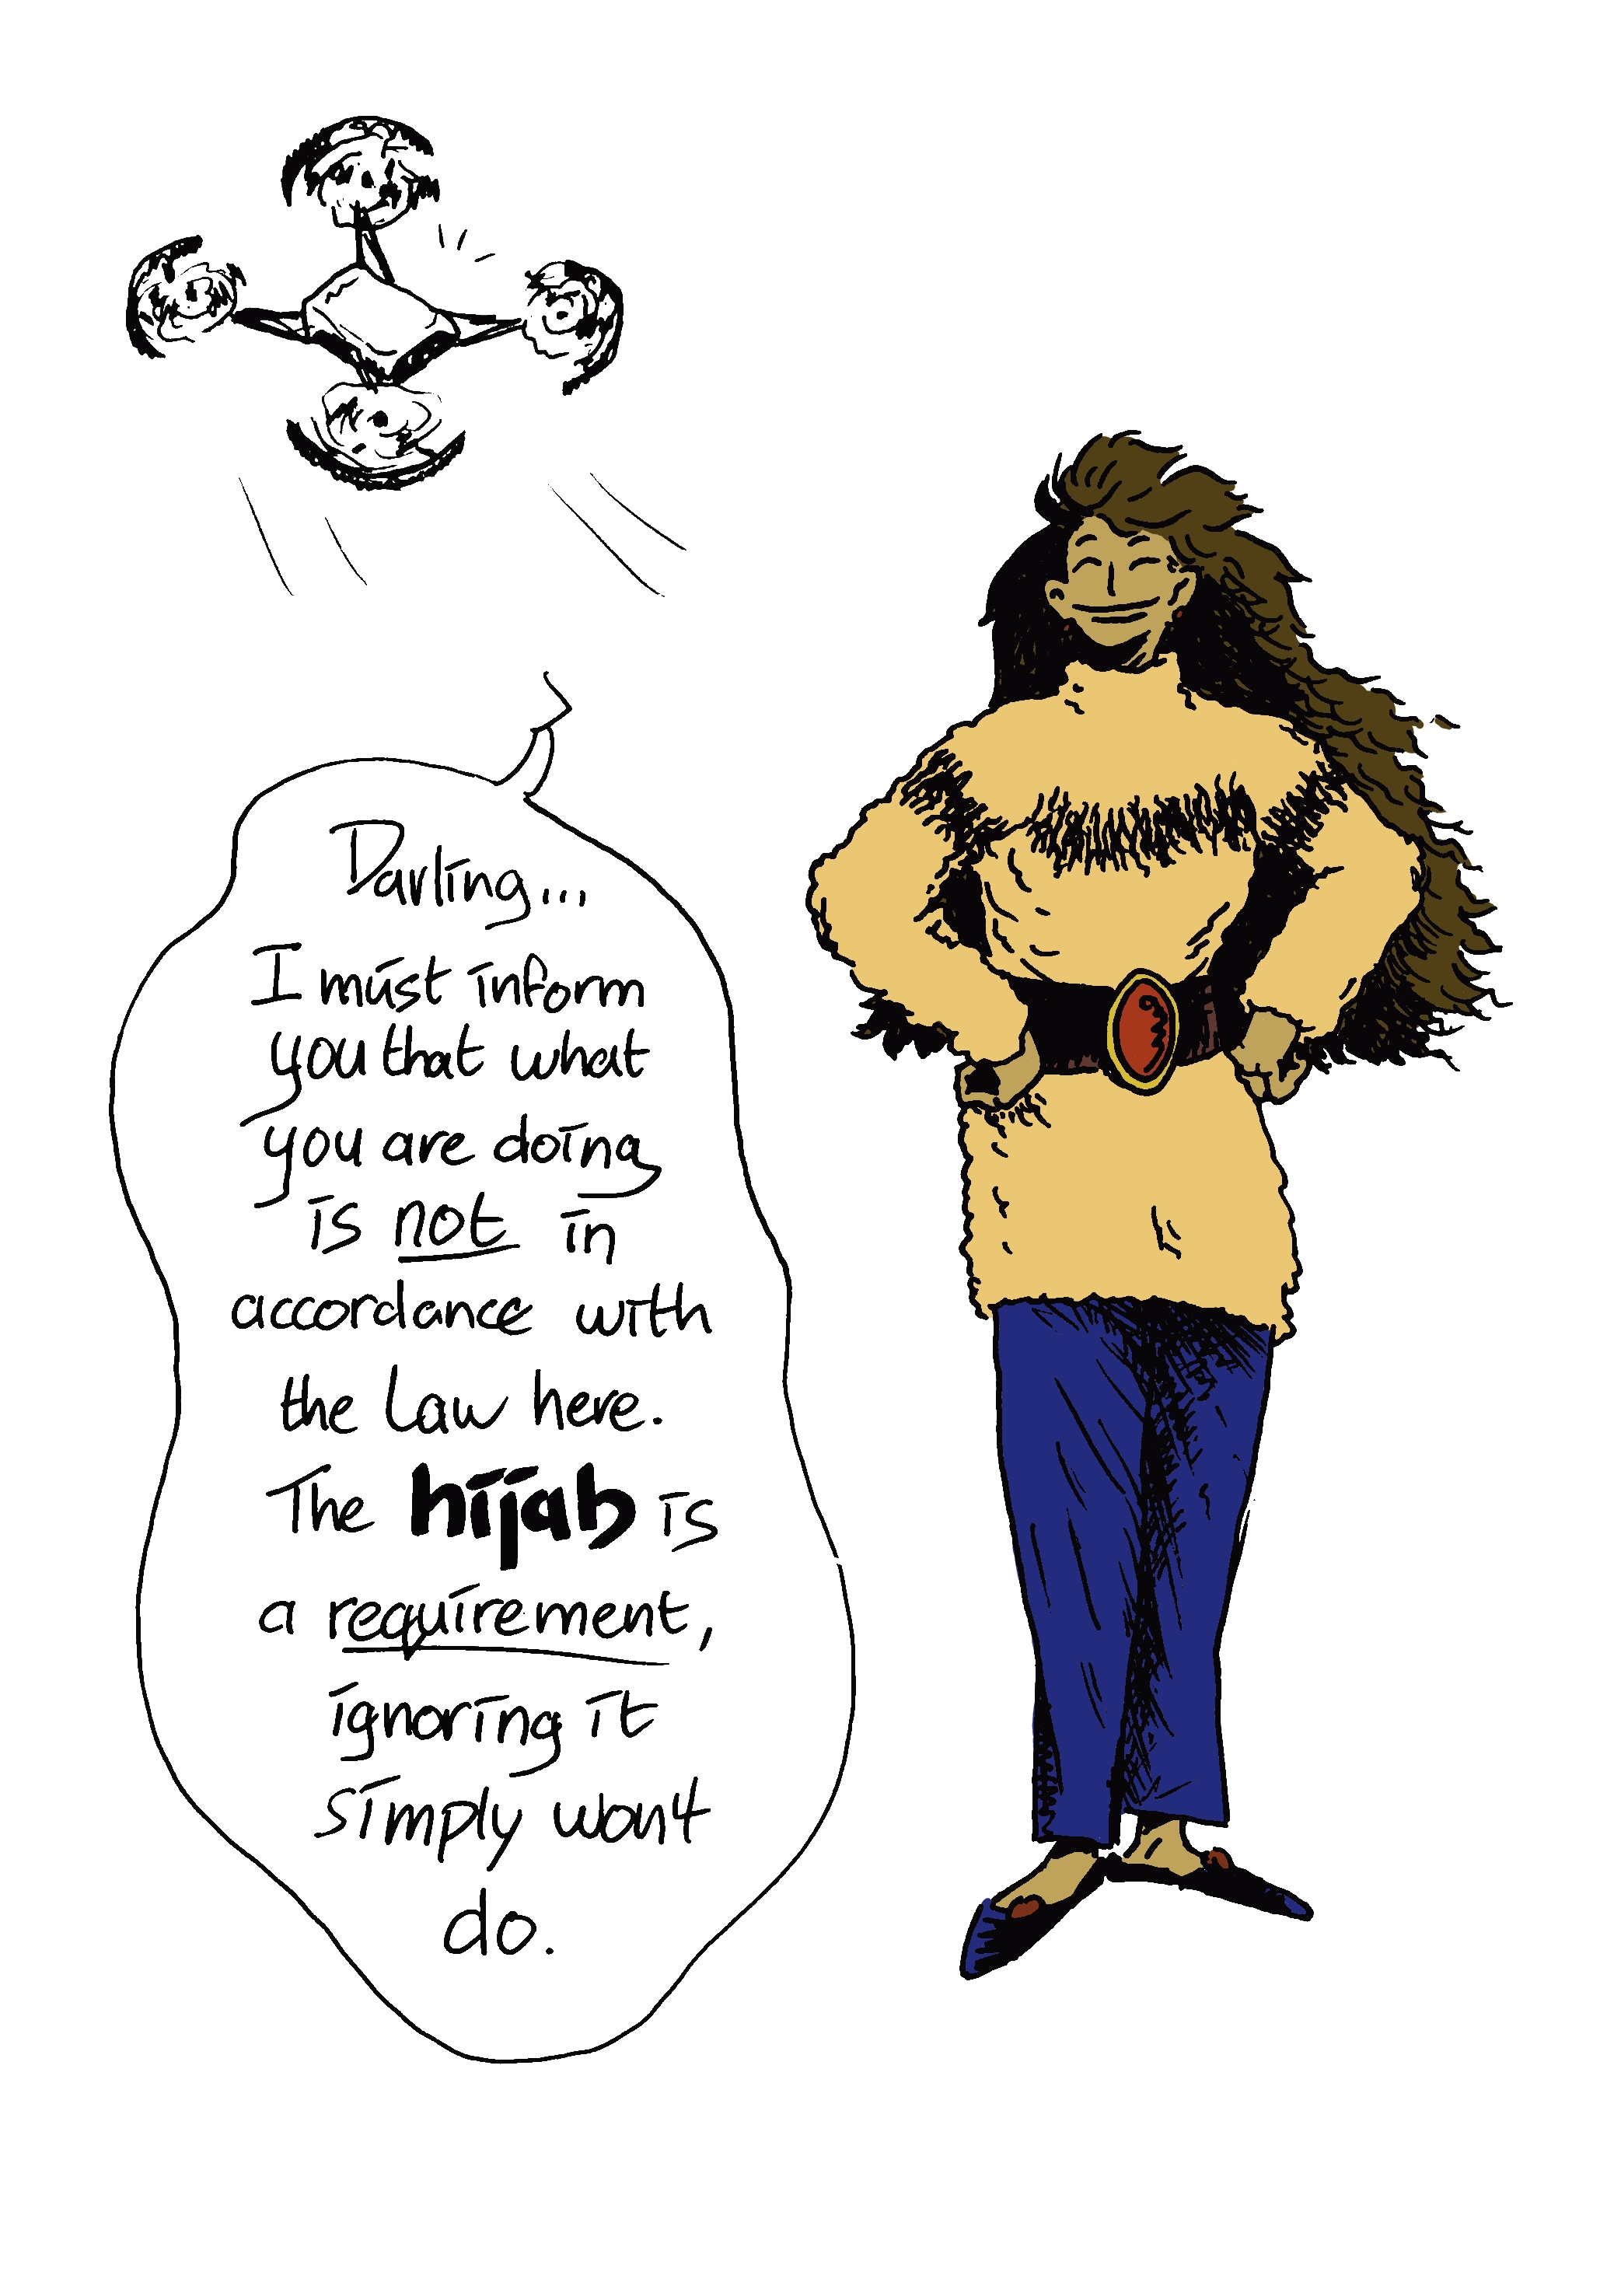 Darling...
I must inform
you that what
you are doing
is not in
accordance with
the Law here.
The hijab is
a requirement,
ignoring it
simply won't
do.